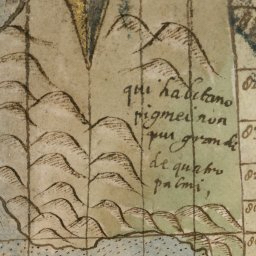 qui habitano
pigmei non
piu grandi
de quatro
palmi,